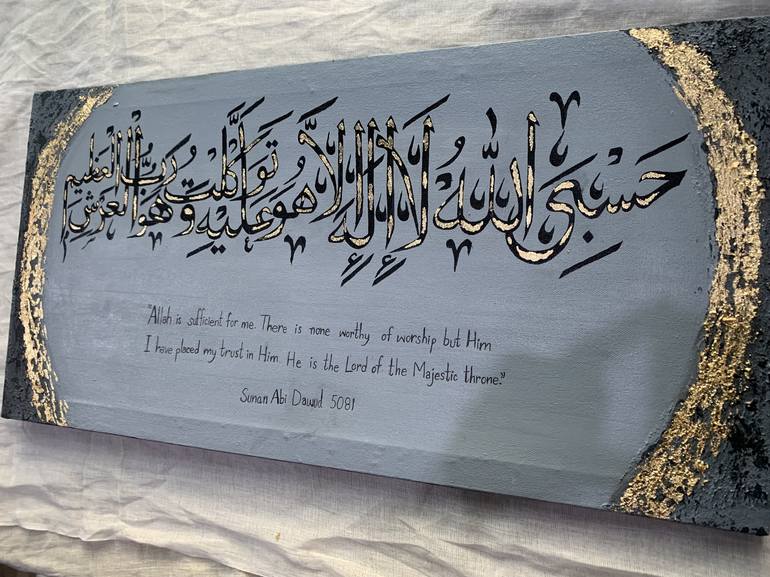 حَسْبِيَ اللهُ لَا إِلَهَ إِلَّا هُوَ عَلَيْهِ تَوَكَّلْتُ وَهُوَ رَبُّ الْعَرْشِ الْعَظِيمِ
"Allah is sufficient for me. There is none worthy of worship but Him
I have placed my trust in Him. He is the Lord of the Majestic throne."
Sunan Abi Dawud 5081